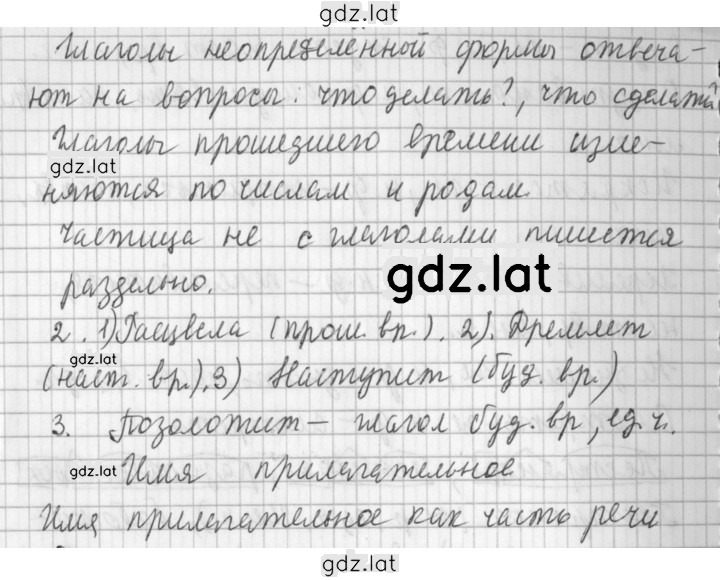 gdz.lat
Глаголы неопределённой формы отвеча-
ют на вопросы: что делать?, что сделать
Глаголы прошедшего времени изме-
gdz.lat
няются по числам и родам.
Частица не с глаголами пишется
раздельно.
gdz.lat
2. 1) Расцвела (прош. вр.). 2). Дремлет
(наст. вр.), 3) Наступит (буд. вр.)
3. Позолотит – глагол буд. вр., ед. ч.
gdz.lat
Имя прилагательное
Имя прилагательное как часть речи
gdz.lat